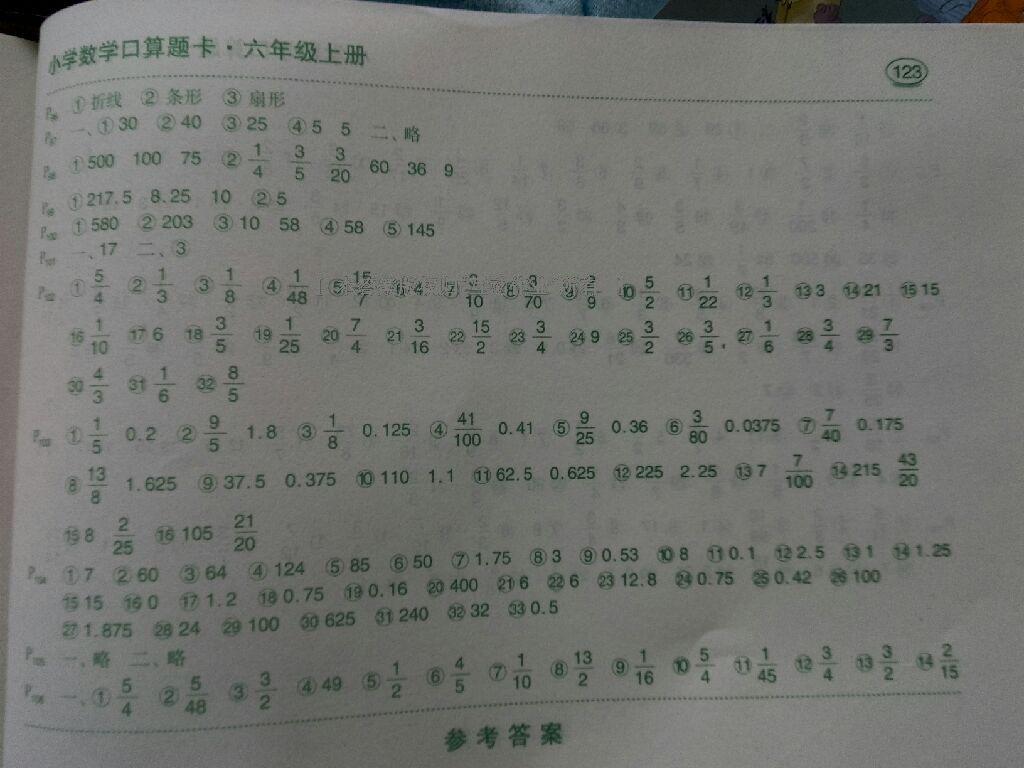 小学数学口算题卡·六年级上册 123
P96 ①折线 ②条形 ③扇形
P97 一、①30 ②40 ③25 ④5 5 二、略
P98 ①500 100 75 ②1/4 3/5 3/20 60 36 9
P99 ①217.5 8.25 10 ②5
P100 ①580 ②203 ③10 58 ④58 ⑤145
P101 一、17 二、③
P102 ①5/4 ②1/3 ③1/8 ④1/48 ⑤15/7 ⑥4 ⑦ /10 ⑧3/70 ⑨ /9 ⑩5/2 ⑪1/22 ⑫1/3 ⑬3 ⑭21 ⑮15
⑯1/10 ⑰6 ⑱3/5 ⑲1/25 ⑳7/4 ㉑3/16 ㉒15/2 ㉓3/4 ㉔9 ㉕3/2 ㉖3/5 ㉗1/6 ㉘3/4 ㉙7/3
㉚4/3 ㉛1/6 ㉜8/5
P103 ①1/5 0.2 ②9/5 1.8 ③1/8 0.125 ④41/100 0.41 ⑤9/25 0.36 ⑥3/80 0.0375 ⑦7/40 0.175
⑧13/8 1.625 ⑨37.5 0.375 ⑩110 1.1 ⑪62.5 0.625 ⑫225 2.25 ⑬7 7/100 ⑭215 43/20
⑮8 2/25 ⑯105 21/20
P104 ①7 ②60 ③64 ④124 ⑤85 ⑥50 ⑦1.75 ⑧3 ⑨0.53 ⑩8 ⑪0.1 ⑫2.5 ⑬1 ⑭1.25
⑮15 ⑯0 ⑰1.2 ⑱0.75 ⑲0.16 ⑳400 ㉑6 ㉒6 ㉓12.8 ㉔0.75 ㉕0.42 ㉖100
㉗1.875 ㉘24 ㉙100 ㉚625 ㉛240 ㉜32 ㉝0.5
P105 一、略 二、略
P106 一、①5/4 ②5/48 ③3/2 ④49 ⑤1/2 ⑥4/5 ⑦1/10 ⑧13/2 ⑨1/16 ⑩5/4 ⑪1/45 ⑫3/4 ⑬3/2 ⑭2/15
参考答案